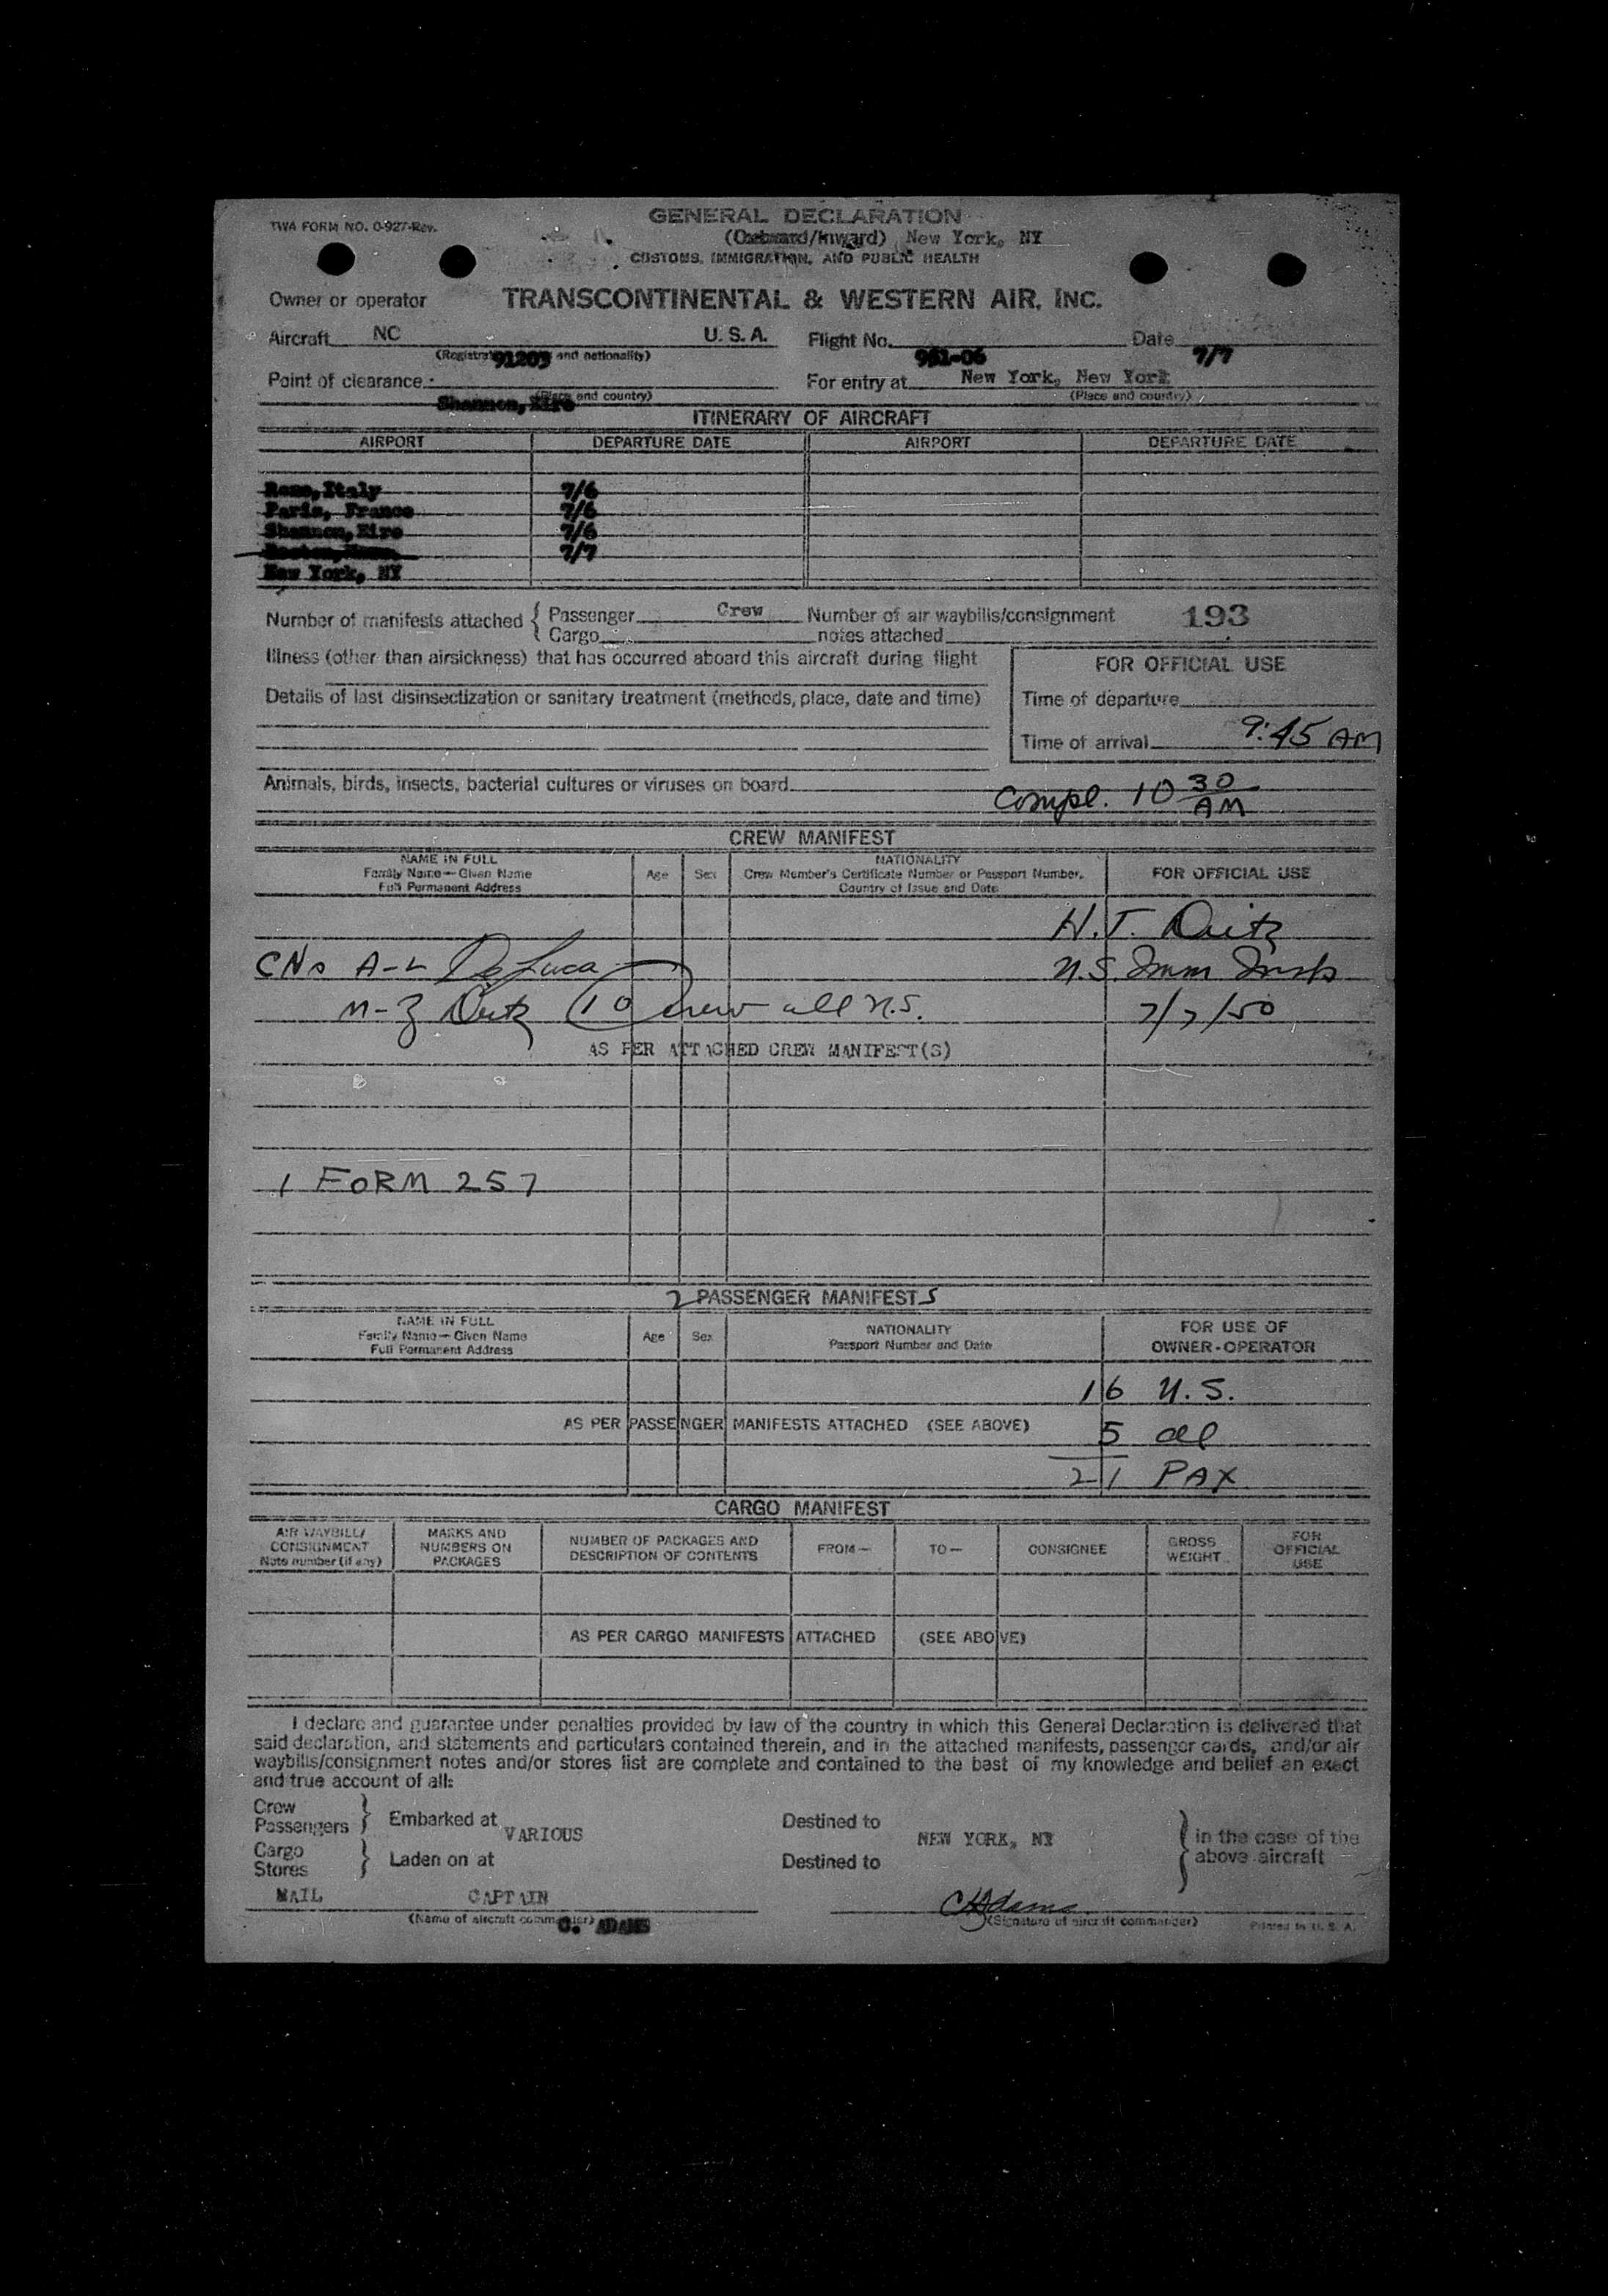 TWA FORM NO. O-927-Rev.
GENERAL DECLARATION
(Outward/Inward) New York, NY
CUSTOMS, IMMIGRATION, AND PUBLIC HEALTH
Owner or operator TRANSCONTINENTAL & WESTERN AIR, INC.
Aircraft NC U. S. A. Flight No. Date
(Registration and nationality) 91203 961-06 7/7
Point of clearance For entry at New York, New York
Shannon, Eire (Place and country) (Place and country)
ITINERARY OF AIRCRAFT
AIRPORT DEPARTURE DATE AIRPORT DEPARTURE DATE
Rome, Italy 7/6
Paris, France 7/6
Shannon, Eire 7/6
7/7
New York, NY
Number of manifests attached { Passenger Crew Number of air waybills/consignment 193
Cargo notes attached
Illness (other than airsickness) that has occurred aboard this aircraft during flight
FOR OFFICIAL USE
Details of last disinsectization or sanitary treatment (methods, place, date and time)
Time of departure
Time of arrival 9:45 AM
Animals, birds, insects, bacterial cultures or viruses on board
Compl. 10 30 AM
CREW MANIFEST
NAME IN FULL
Family Name — Given Name
Full Permanent Address
Age Sex
NATIONALITY
Crew Member's Certificate Number or Passport Number,
Country of Issue and Date
FOR OFFICIAL USE
H.T. Deitz
CNs A-L DeLuca U.S. Imm Insp
M-Z Deitz 10 Crew all U.S. 7/7/50
AS PER ATTACHED CREW MANIFEST(S)
1 FORM 257
2 PASSENGER MANIFESTS
NAME IN FULL
Family Name — Given Name
Full Permanent Address
Age Sex
NATIONALITY
Passport Number and Date
FOR USE OF
OWNER-OPERATOR
16 U.S.
AS PER PASSENGER MANIFESTS ATTACHED (SEE ABOVE) 5 al
21 PAX
CARGO MANIFEST
AIR WAYBILL/
CONSIGNMENT
Note number (if any)
MARKS AND
NUMBERS ON
PACKAGES
NUMBER OF PACKAGES AND
DESCRIPTION OF CONTENTS
FROM —
TO —
CONSIGNEE
GROSS
WEIGHT
FOR
OFFICIAL
USE
AS PER CARGO MANIFESTS ATTACHED (SEE ABOVE)
I declare and guarantee under penalties provided by law of the country in which this General Declaration is delivered that
said declaration, and statements and particulars contained therein, and in the attached manifests, passenger cards, and/or air
waybills/consignment notes and/or stores list are complete and contained to the best of my knowledge and belief an exact
and true account of all:
Crew
Passengers } Embarked at VARIOUS Destined to NEW YORK, NY
Cargo
Stores } Laden on at Destined to
} in the case of the
above aircraft
MAIL CAPTAIN CHAdams
(Name of aircraft commander) C. ADAMS (Signature of aircraft commander) Printed in U. S. A.